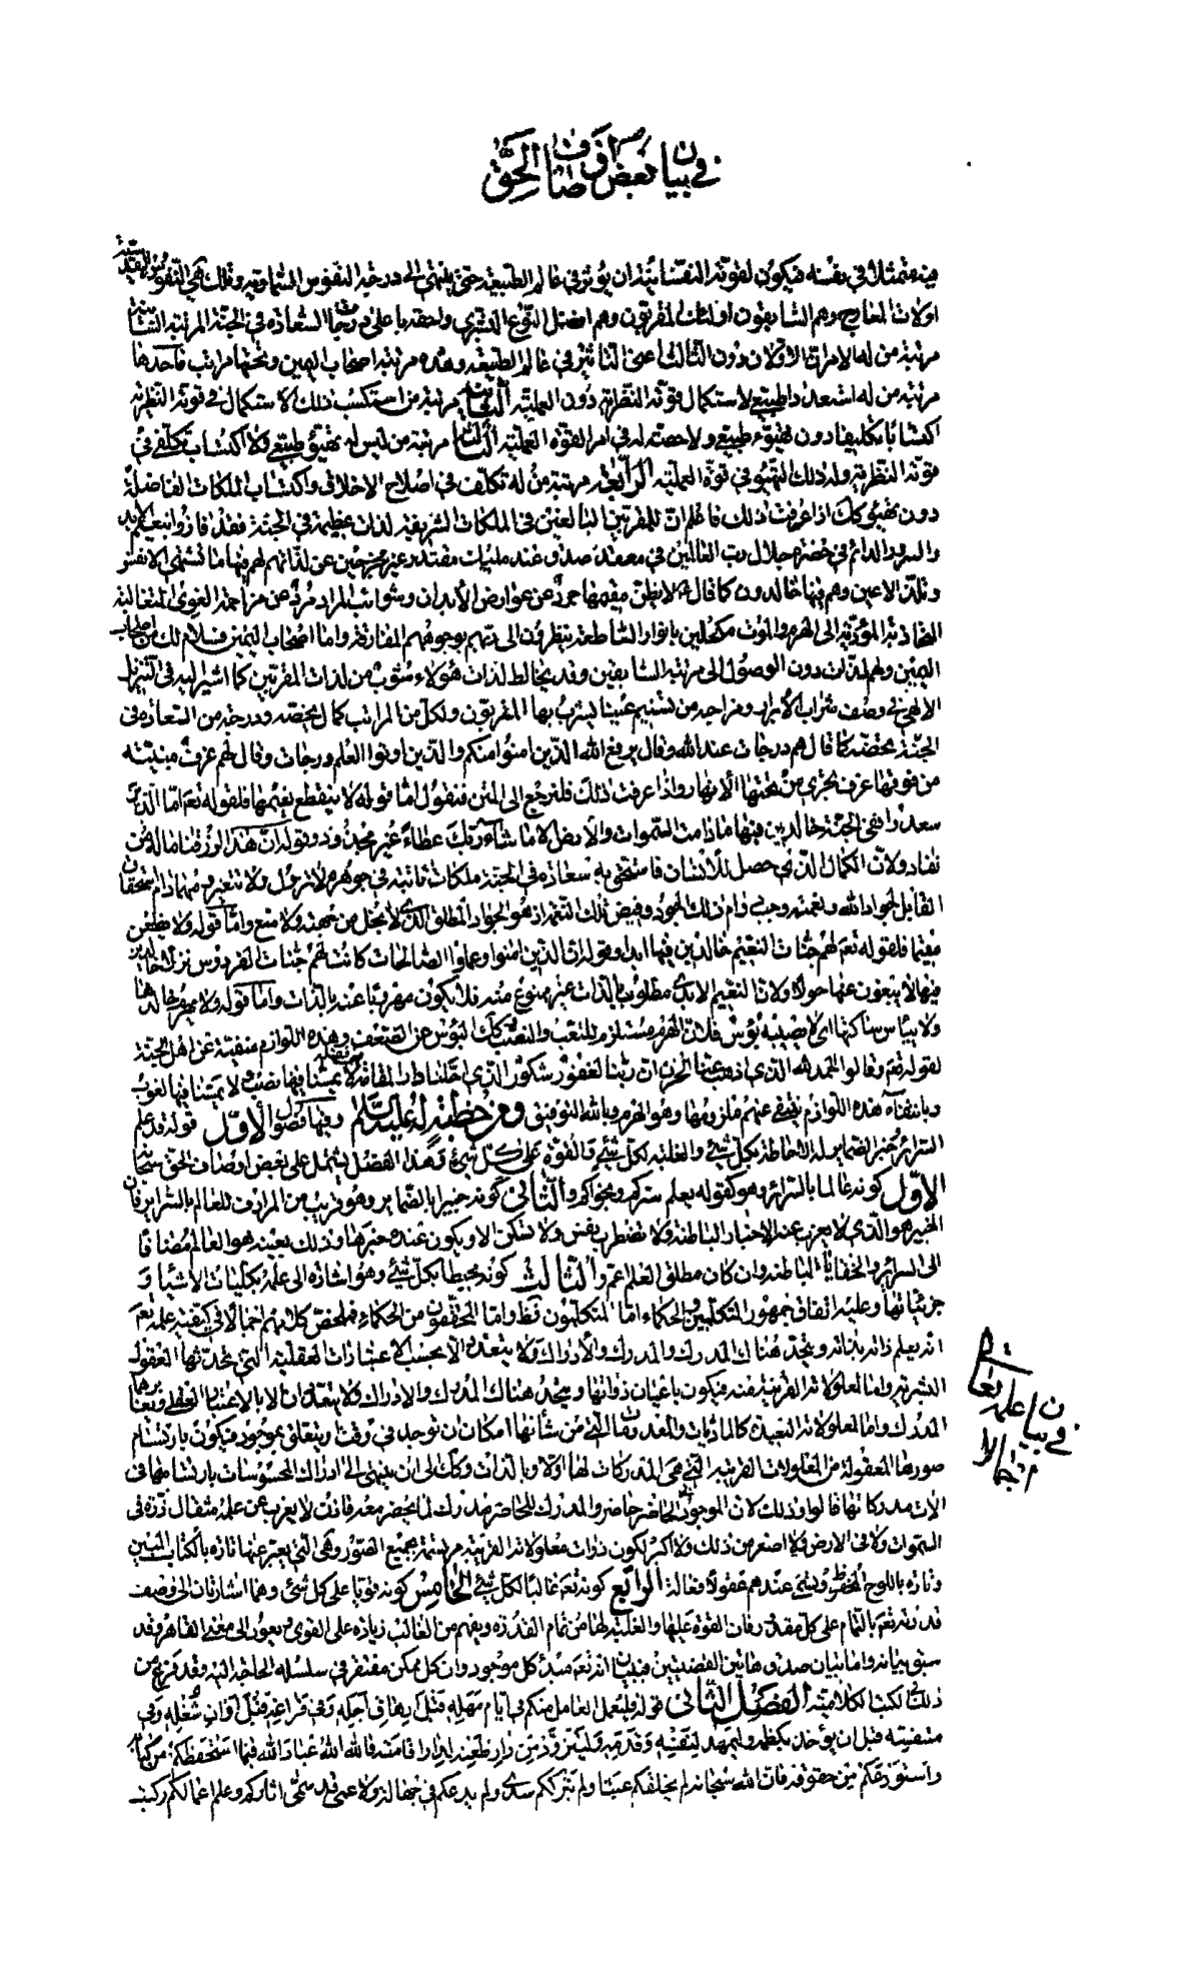 في بيان بعض اوصاف الحق
فيه متمثلا في نفسه فيكون لقوته النفسانية ان يؤثر في عالم الطبيعة حتى ينتهي الى درجة النفوس السماوية وتلك هي النفوس القدسية
اولات المعارج وهم السابقون اولئك المقربون وهم افضل النوع البشري واحقه باعلى درجات السعادة في الجنة المرتبة الثانية
مرتبة من له الامران الاولان دون الثالث اعني التاثير في عالم الطبيعة وهذه مرتبة اصحاب اليمين وتحتها مراتب فاحدها
مرتبة من له استعداد طبيعي لاستكمال قوته النظرية دون العملية الثانية مرتبة من استكسب ذلك الاستكمال في قوته النظرية
اكتسابا تكليفا دون تهيؤ طبيعي ولا حصة له في امر القوة العملية الثالثة مرتبة من ليس له تهيؤ طبيعي ولا اكتساب تكلفي في
قوته النظرية وله ذلك التهيؤ في قوة العملية الرابعة مرتبة من له تكلف في اصلاح الاخلاق واكتساب الملكات الفاضلة
دون تهيؤ كك اذا عرفت ذلك فاعلم ان للمقربين البالغين في الملكات الشريفة لذات عظيمة في الجنة فقد فازوا بنعيم
والسرور الدائم في حضرة جلال رب العالمين في مقعد صدق عند مليك مقتدر غير مخرجين عن لذاتهم لهم فيها ما تشتهي الانفس
وتلذ الاعين وهم فيها خالدون كما قال ع لا يظعن مقيمها جرد عن عوارض الأبدان وشوائب المراد مرد عن مزاحمة القوى المتغالبة
المؤدية الى الهرم والموت مكحلين بانوار الساطعة ينظرون الى ربهم بوجوههم المفارقة واما اصحاب اليمين فسلام لك من اصحاب
اليمين ولهم لذات دون الوصول الى مرتبة السابقين وقد يخالط لذات هؤلاء شوب من لذات المقربين كما اشير اليه في التنزيل
الالهي في وصف شراب الأبرار ومزاجه من تسنيم عينا يشرب بها المقربون ولكل من المراتب كمال يخصه ودرجة من السعادة في
الجنة تخصه كما قال هم درجات عند الله وقال يرفع الله الذين امنوا منكم والذين اوتوا العلم درجات وقال لهم غرف مبنيته
من فوقها غرف تجري من تحتها الأنهار واذا عرفت ذلك فلنرجع الى المتن فنقول اما قوله لا ينقطع نعيمها فلقوله تعالى اما الذين
سعدوا ففي الجنة خالدين فيها ما دامت السموات والأرض الا ما شاء ربك عطاء غير مجذوذ وقوله ان هذا لرزقنا ما له من
نفاد ولان الكمال الذي حصل للأنسان فاستحق به سعادة في الجنة ملكات ثابتة في جوهره لا تزول ولا تتغير ومهما دام استحقاق
القابل لجواد الله ونعمته وجب دوام ذلك الجود وفيض تلك النعم اذ هو الجواد المطلق الذي لا بخل من جهته ولا منع واما قوله ولا يظعن
مقيمها فلقوله تعالى لهم جنات النعيم خالدين فيها ابدا وقوله ان الذين امنوا وعملوا الصالحات كانت لهم جنات الفردوس نزلا خالدين
فيها لا يبغون عنها حولا ولان النعيم الابدي مطلوب بالذات غير ممنوع منه فلا يكون مهروبا عنه بالذات واما قوله ولا يهرم خالدها
ولا يبأس ساكنها اي لا يصيبه بؤس فلان الهرم مستلزم للتعب والنصب كك البؤس عن الضعف وهذه اللوازم منفية عن اهل الجنة
لقوله تعالى وقالوا الحمد لله الذي اذهب عنا الحزن ان ربنا لغفور شكور الذي احلنا دار المقامة من فضله لا يمسنا فيها نصب ولا يمسنا فيها لغوب
وبانتفاء هذه اللوازم ينتفي عنهم ملزومها وهو الهرم وبالله التوفيق ومن خطبة له عليه السلام وفيها فصول الأول قوله قد علم
السرائر وخبر الضمائر له الاحاطة بكل شيء والغلبة لكل شيء والقوة على كل شيء وهذا الفصل يشتمل على بعض اوصاف الحق سبحانه
الاول كونه عالما بالسرائر وهو كقوله يعلم سركم ونجواكم والثاني كونه خبيرا بالضماير وهو قريب من المرادف للعالم بالسراير فان
الخبير هو الذي لا يعزب عنه الاخبار الباطنة ولا تضطرب نفس ولا تسكن الا ويكون عنده خبرها وذلك بعينه هو العالم مضافا
الى السرائر والخفايا الباطنة وان كان مطلق العلم اعم والثالث كونه محيطا بكل شيء وهو اشارة الى علمه بكليات الأشياء و
جزئياتها وعليه اتفاق جمهور المتكلمين والحكماء اما المتكلمون فظ واما المحققون من الحكماء فملخص كلامهم اجمالا في كيفية علمه تعالى
انه يعلم ذاته بذاته ويتحد هناك المدرك والمدرك والأدراك ولا يتعدد الا بحسب الاعتبارات العقلية التي تحدثها العقول
البشرية واما لعلولاته القريبة منه فيكون باعيان ذواتها ويتحد هناك المدرك والادراك ولا يتعددان الا بالاعتبار العقلي ويغايرهما
المدرك واما لمعلولاته البعيدة كالماديات والمعدومات التي من شأنها امكان ان توجد في وقت او يتعلق بموجود فيكون بارتسام
صورها المعقولة من المعلولات القريبة التي هي المدركات لها اولا وبالذات وكك الى ان ينتهي الى ادراك المحسوسات بارتسامها في
الات مدركاتها قالوا وذلك لان الموجود في الحاضر حاضر والمدرك للحاضر مدرك لما يحضر معه فاذن لا يعزب عن علمه مثقال ذرة في
السموات ولا في الارض ولا اصغر من ذلك ولا اكبر لكون ذوات معلولاته القريبة مرتسمة بجميع الصور وهي التي يعبر عنها تارة بالكتاب المبين
وتارة باللوح المحفوظ وتسمى عندهم عقولا فعالة الرابع كونه تعالى غالبا لكل شيء الخامس كونه قويا على كل شيء وهما اشارتان الى وصف
قدرته تعالى بالتمام على كل مقدور فان القوة عليها والغلبة لها من تمام القدرة ويفهم من الغالب زيادة على القوي ويعود الى معنى القاهر وقد
سبق بيانه واما بيان صدق هاتين القضيتين فببيان انه تعالى مبدء كل موجود وان كل ممكن مفتقر في سلسلة الحاجة اليه وقد فرغ من
ذلك في الكتب الكلامية الفصل الثاني قوله فليعمل العامل منكم في ايام مهله قبل ارهاق اجله وفي فراغه قبل اوان شغله وفي
متنفسه قبل ان يؤخذ بكظمه وليمهد لنفسه وقدمه وليتزود من دار ظعنه لدار اقامته فالله الله عباد الله فيما استحفظكم من كتابه
واستودعكم من حقوقه فان الله سبحانه لم يخلقكم عبثا ولم يترككم سدى ولم يدعكم في جهالة ولا عمى قد سمى اثاركم وعلم اعمالكم وكتب
في بيان علمه تعالى
اجمالا